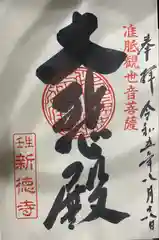 奉拝
令和五年
准胝観世音菩薩
大悲殿
新徳寺